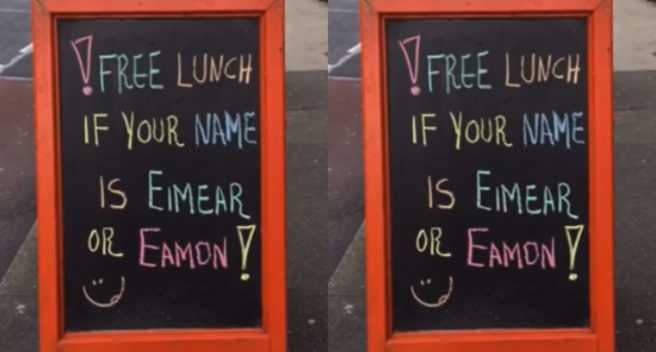 ! FREE LUNCH
IF YOUR NAME
IS EIMEAR
OR EAMON!
! FREE LUNCH
IF YOUR NAME
IS EIMEAR
OR EAMON!